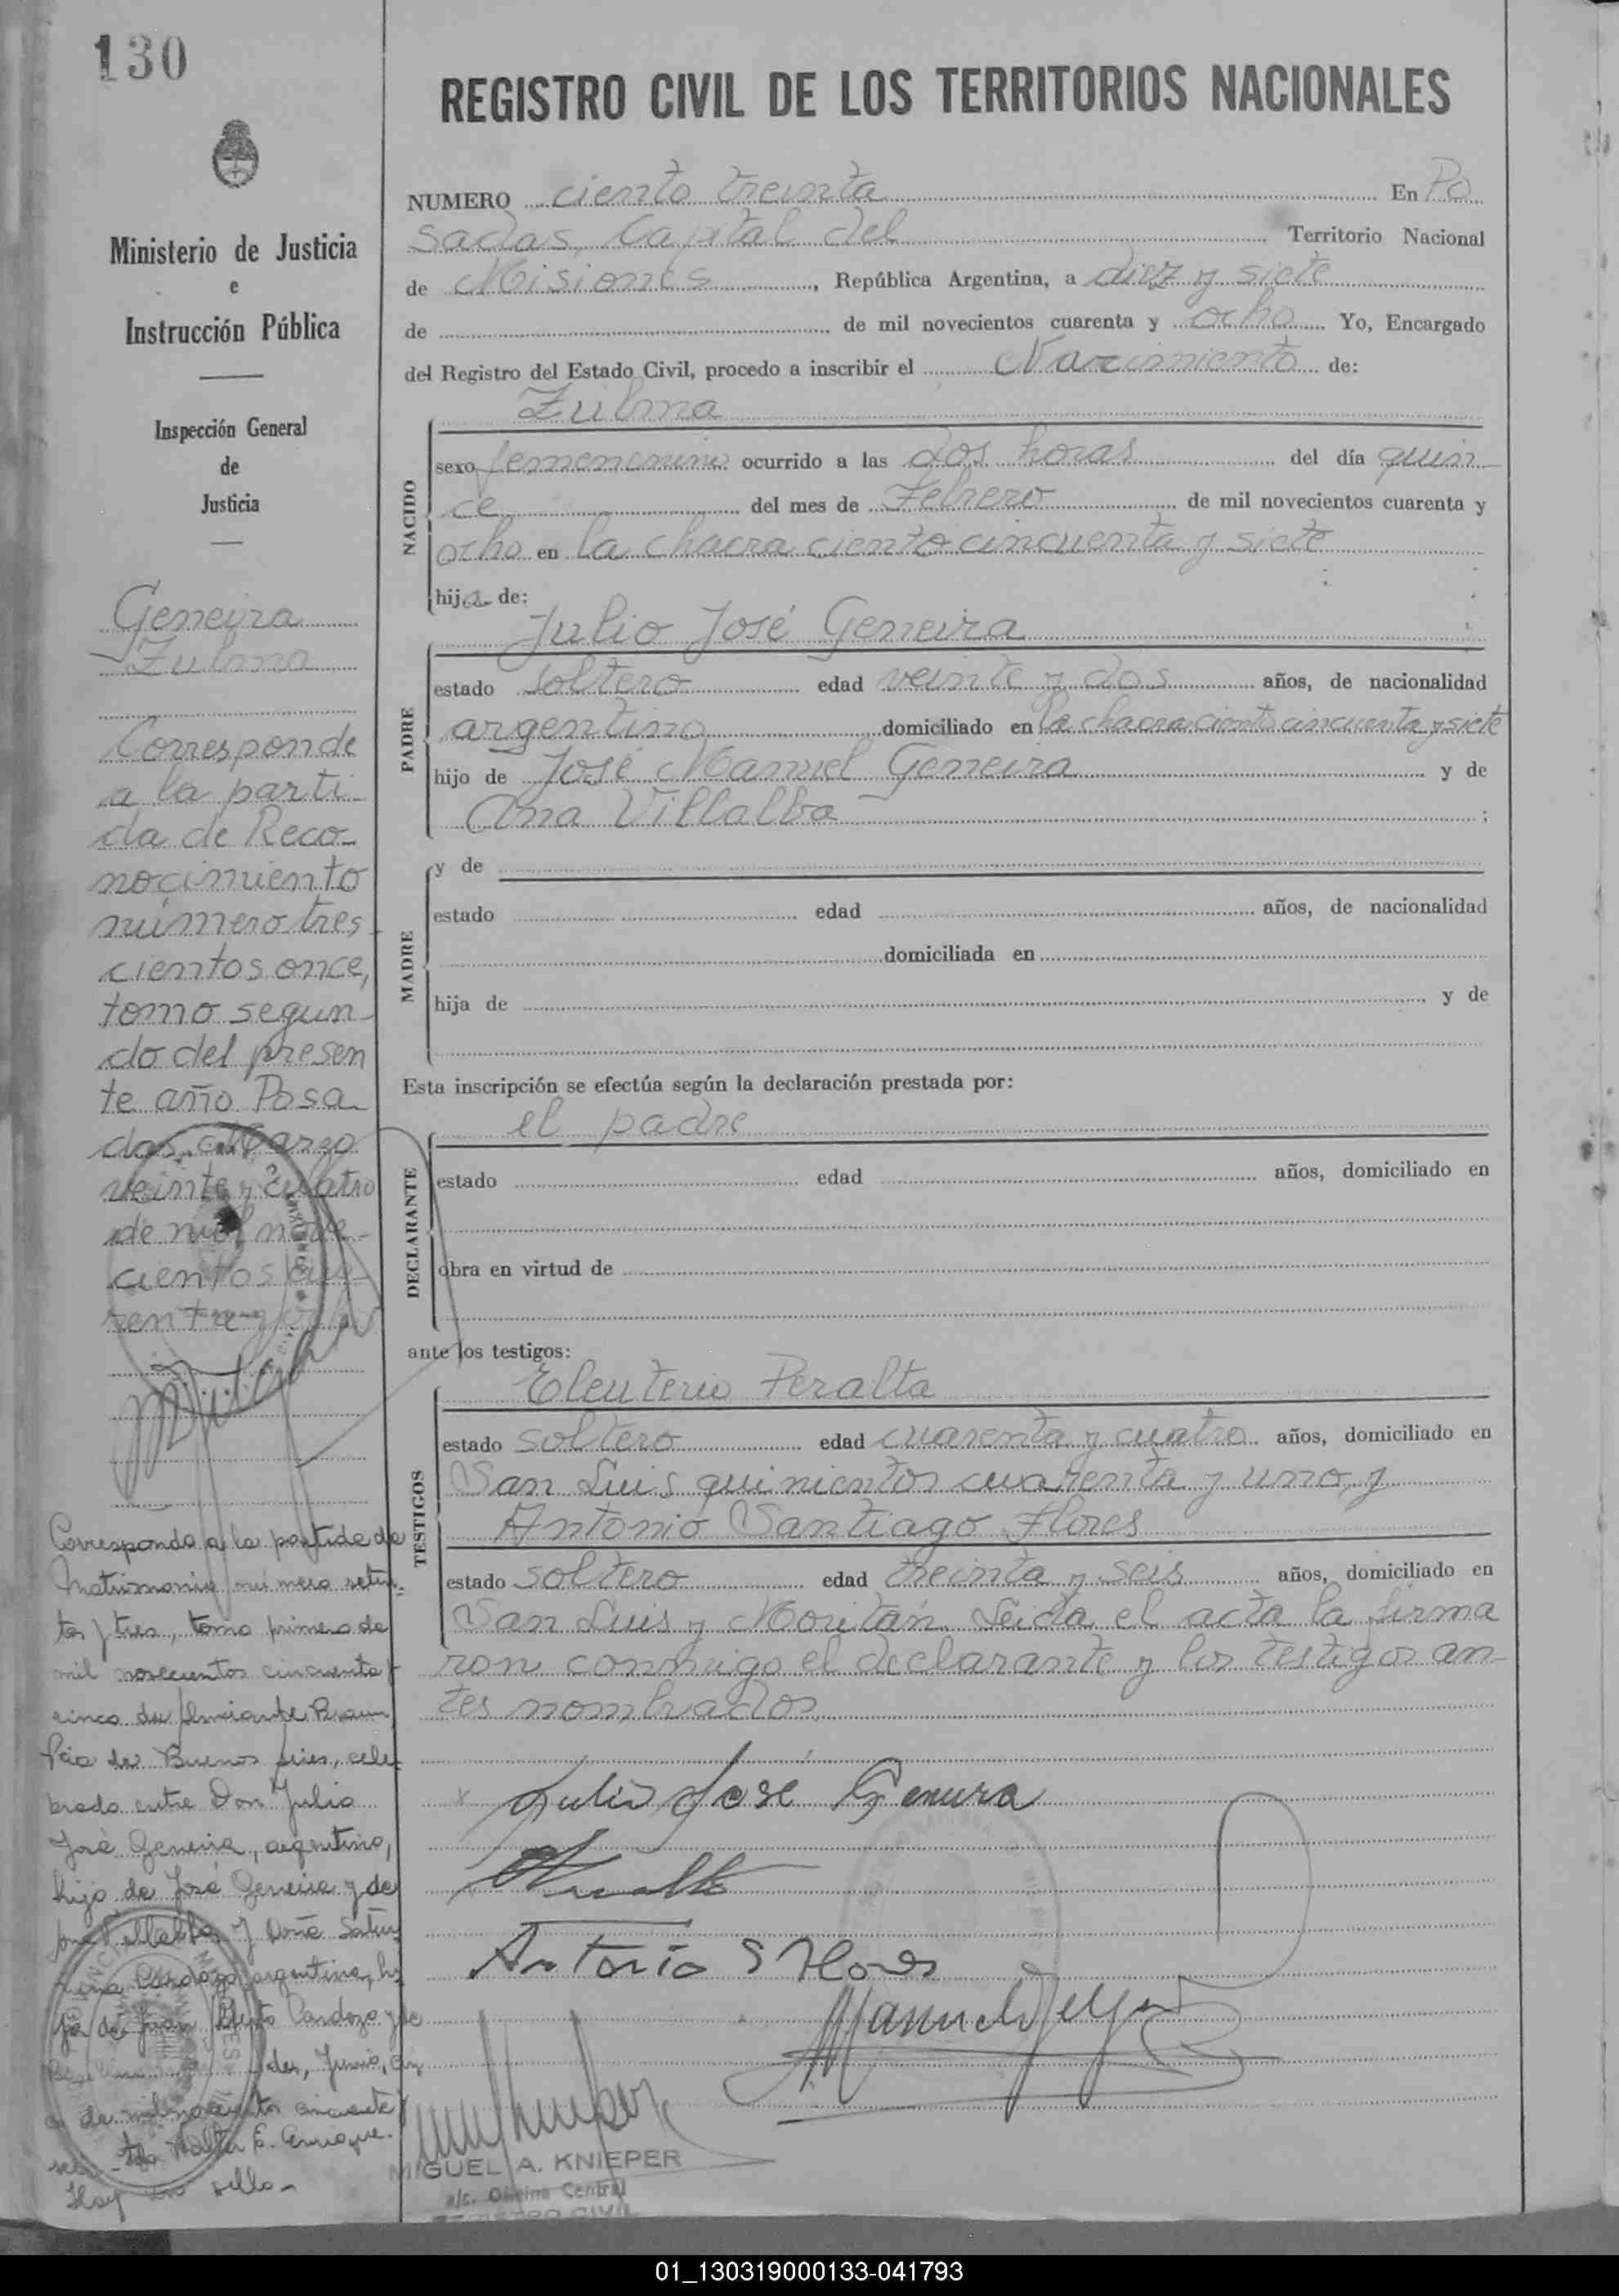 130
Ministerio de Justicia
e
Instrucción Pública
Inspección General
de
Justicia
Geneira
Zulma
Corresponde
a la parti-
da de Reco-
nocimiento
número tres
cientos once,
tomo segun-
do del presen
te año Posa-
das, Marzo
veinte y cuatro
de mil nove-
cientos cua-
renta y ocho
Corresponde a la partida de
Matrimonio número seten-
ta y tres, tomo primero de
mil novecientos cincuenta y
cinco de Almirante Brown,
Pcia de Buenos Aires, cele-
brado entre Don Julio
José Geneira, argentino,
hijo de José Geneira y de
Ana Villalba y Doña Satur
nina Cardozo, argentina, hi
ja de Juan Cardozo y de
de mil novecientos cincuenta y
Walter E. Enrique.
Hay un sello.-
REGISTRO CIVIL DE LOS TERRITORIOS NACIONALES
NUMERO ciento treinta En Po
sadas, Capital del Territorio Nacional
de Misiones, República Argentina, a diez y siete
de de mil novecientos cuarenta y ocho Yo, Encargado
del Registro del Estado Civil, procedo a inscribir el Nacimiento de:
NACIDO
Zulma
sexo femenino ocurrido a las dos horas del día quin-
ce del mes de Febrero de mil novecientos cuarenta y
ocho en la chacra ciento cincuenta y siete
hija de:
PADRE
Julio José Geneira
estado soltero edad veinte y dos años, de nacionalidad
argentino domiciliado en la chacra ciento cincuenta y siete
hijo de José Manuel Geneira y de
Ana Villalba ;
MADRE
y de
estado edad años, de nacionalidad
domiciliada en
hija de y de
Esta inscripción se efectúa según la declaración prestada por:
DECLARANTE
el padre
estado edad años, domiciliado en
obra en virtud de
ante los testigos:
TESTIGOS
Eleuterio Peralta
estado soltero edad cuarenta y cuatro años, domiciliado en
San Luis quinientos cuarenta y uno, y
Antonio Santiago Flores
estado soltero edad treinta y seis años, domiciliado en
San Luis y Moritán. Leida el acta la firma
ron conmigo el declarante y los testigos an-
tes nombrados.
Julio José Geneira
Antonio S Flores
MIGUEL A. KNIEPER
a/c. Oficina Central
REGISTRO CIVIL
01_130319000133-041793